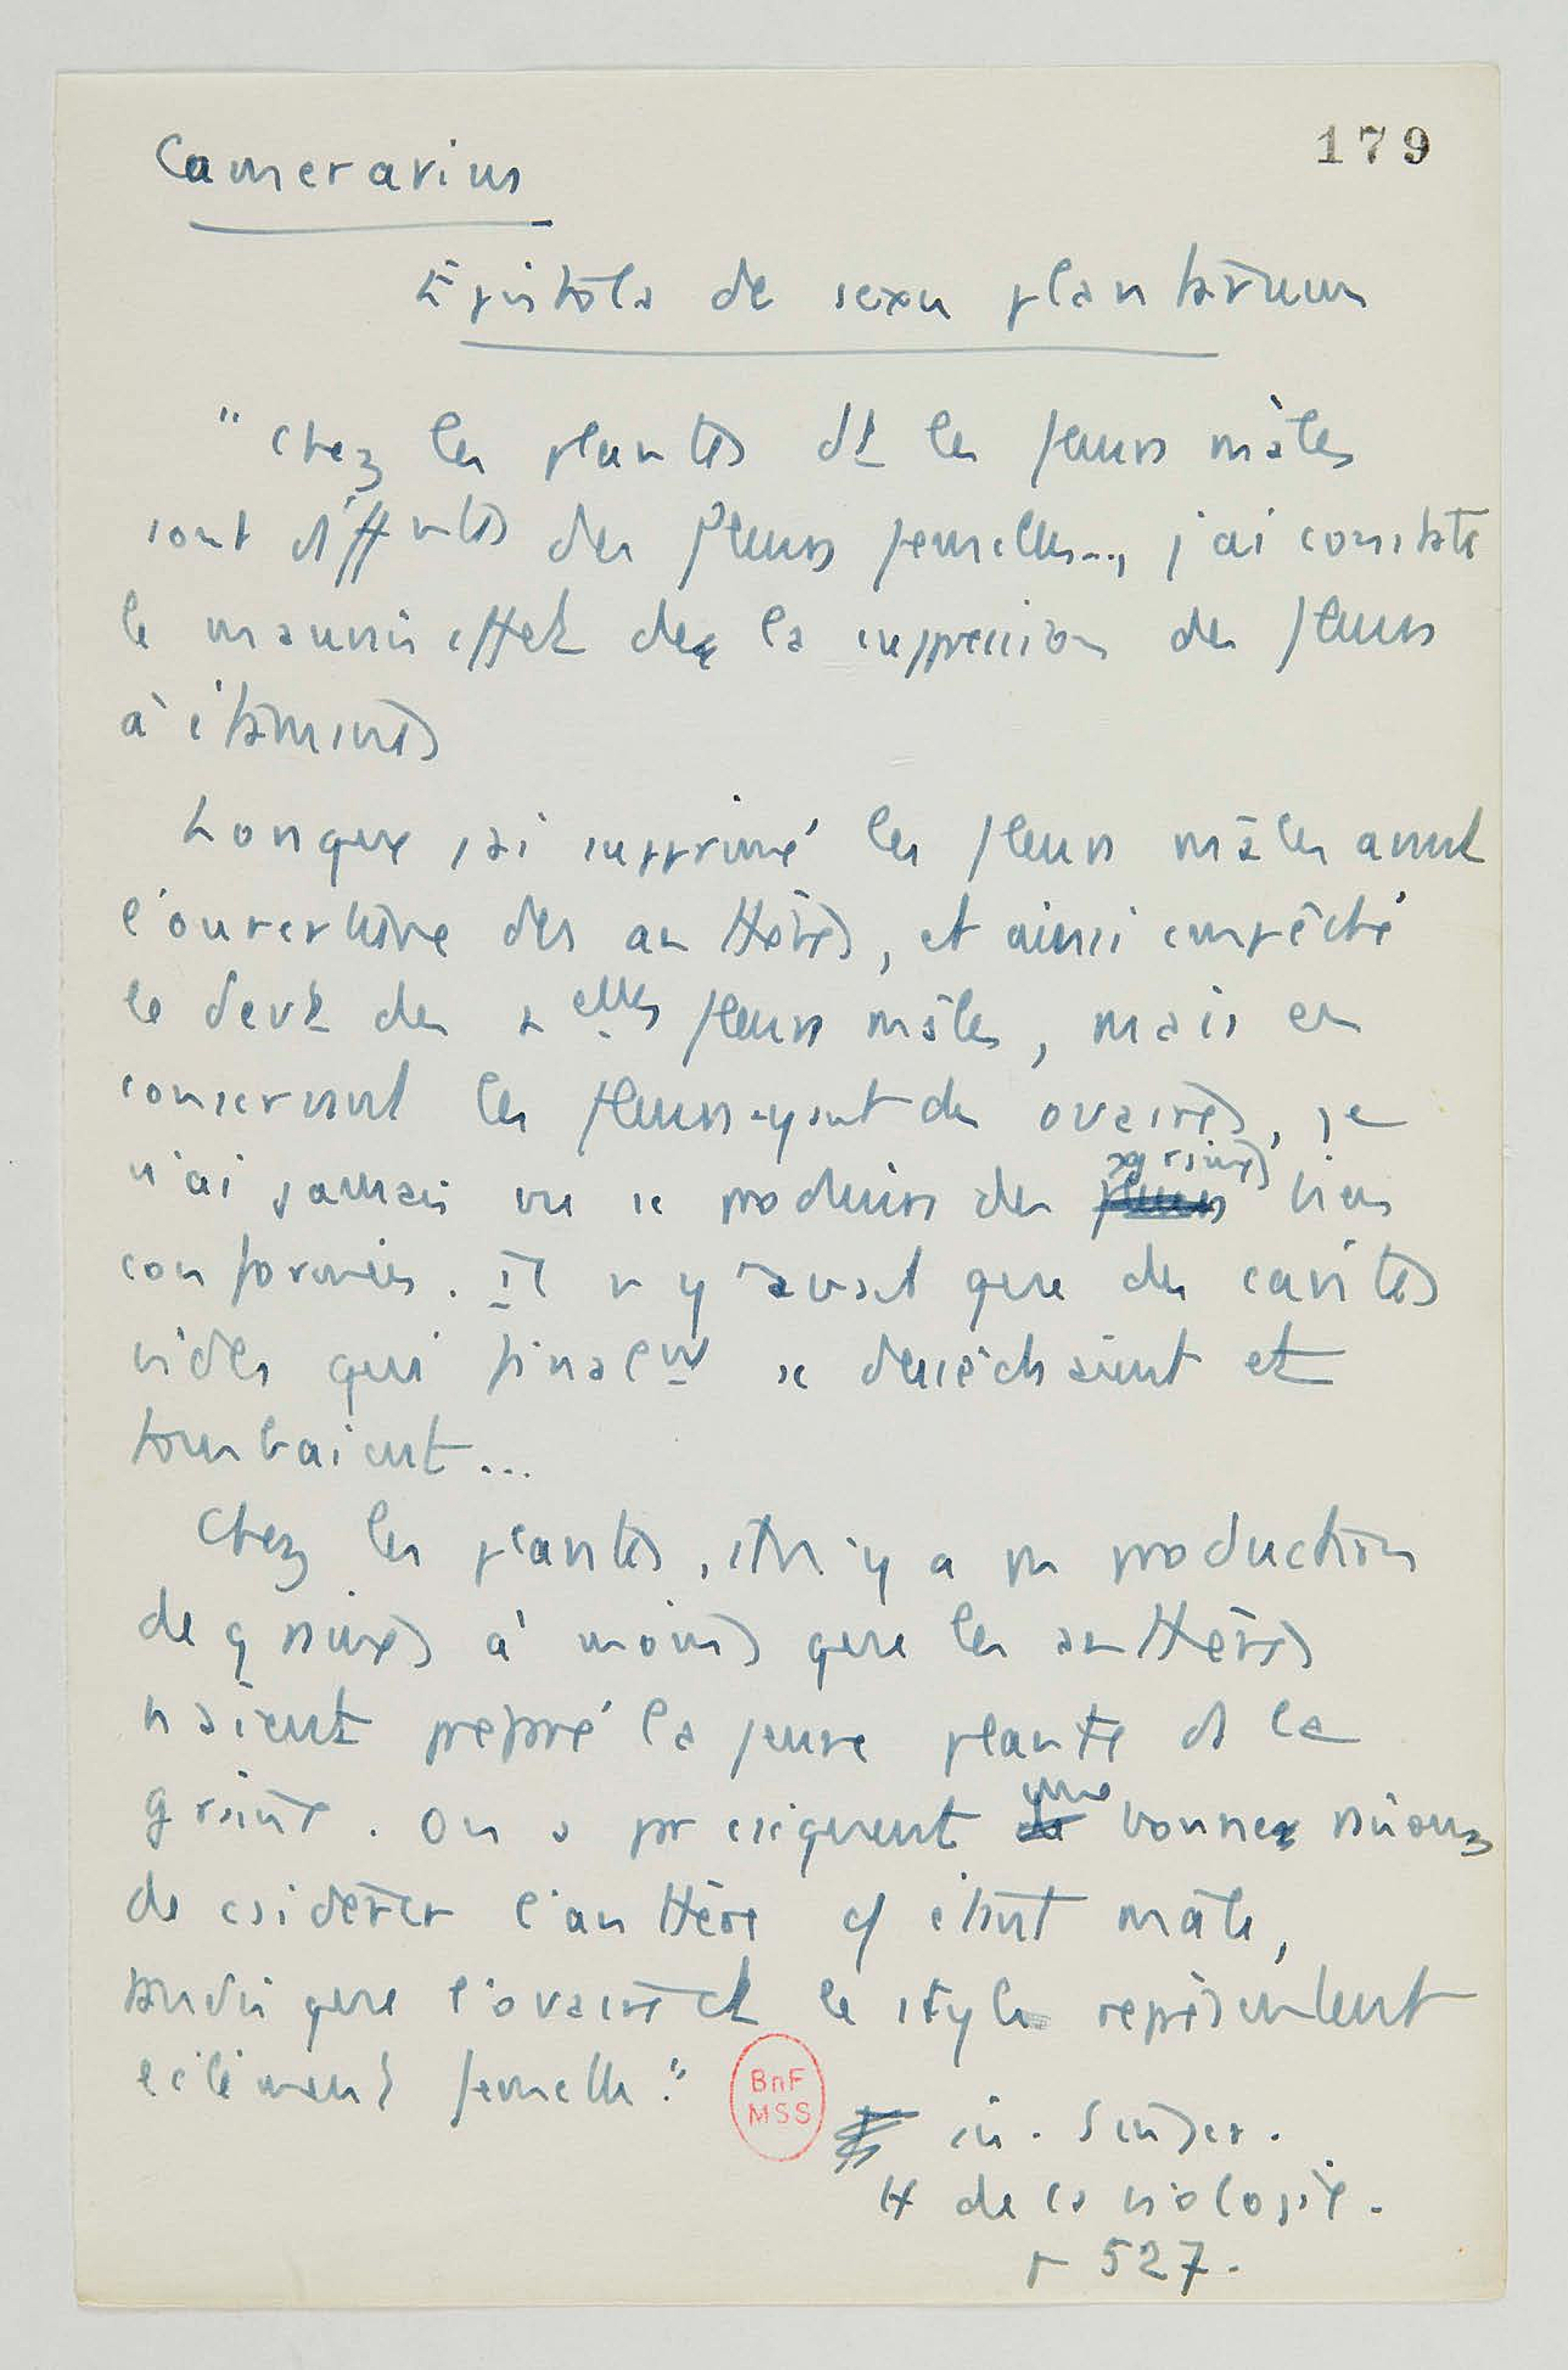 179
Camerarius
Epistola de sexu plantarum
"Chez les plantes dt les fleurs mâles
sont différentes des fleurs femelles..., j'ai constaté
le mauvais effet de la suppression des fleurs
à étamines
Lorsque j'ai supprimé les fleurs mâles avant
l'ouverture des anthères, et ainsi empêché
le devt des nelles fleurs mâles, mais en
conservant les fleurs ayant des ovaires, je
n'ai jamais vu se produire des graines bien
conformées. Il n'y avait que des cavités
vides qui finalemt se desséchaient et
tombaient...
Chez les plantes, il n'y a pas production
de graines à moins que les anthères
n'aient préparé la jeune plante ds la
graine. On a par conséquent une bonne raison
de csidérer l'anthère cf étant mâle,
tandis que l'ovaire et le style représentent
l'élément femelle."
BnF
MSS
in. Singer.
H de la biologie.
p 527.